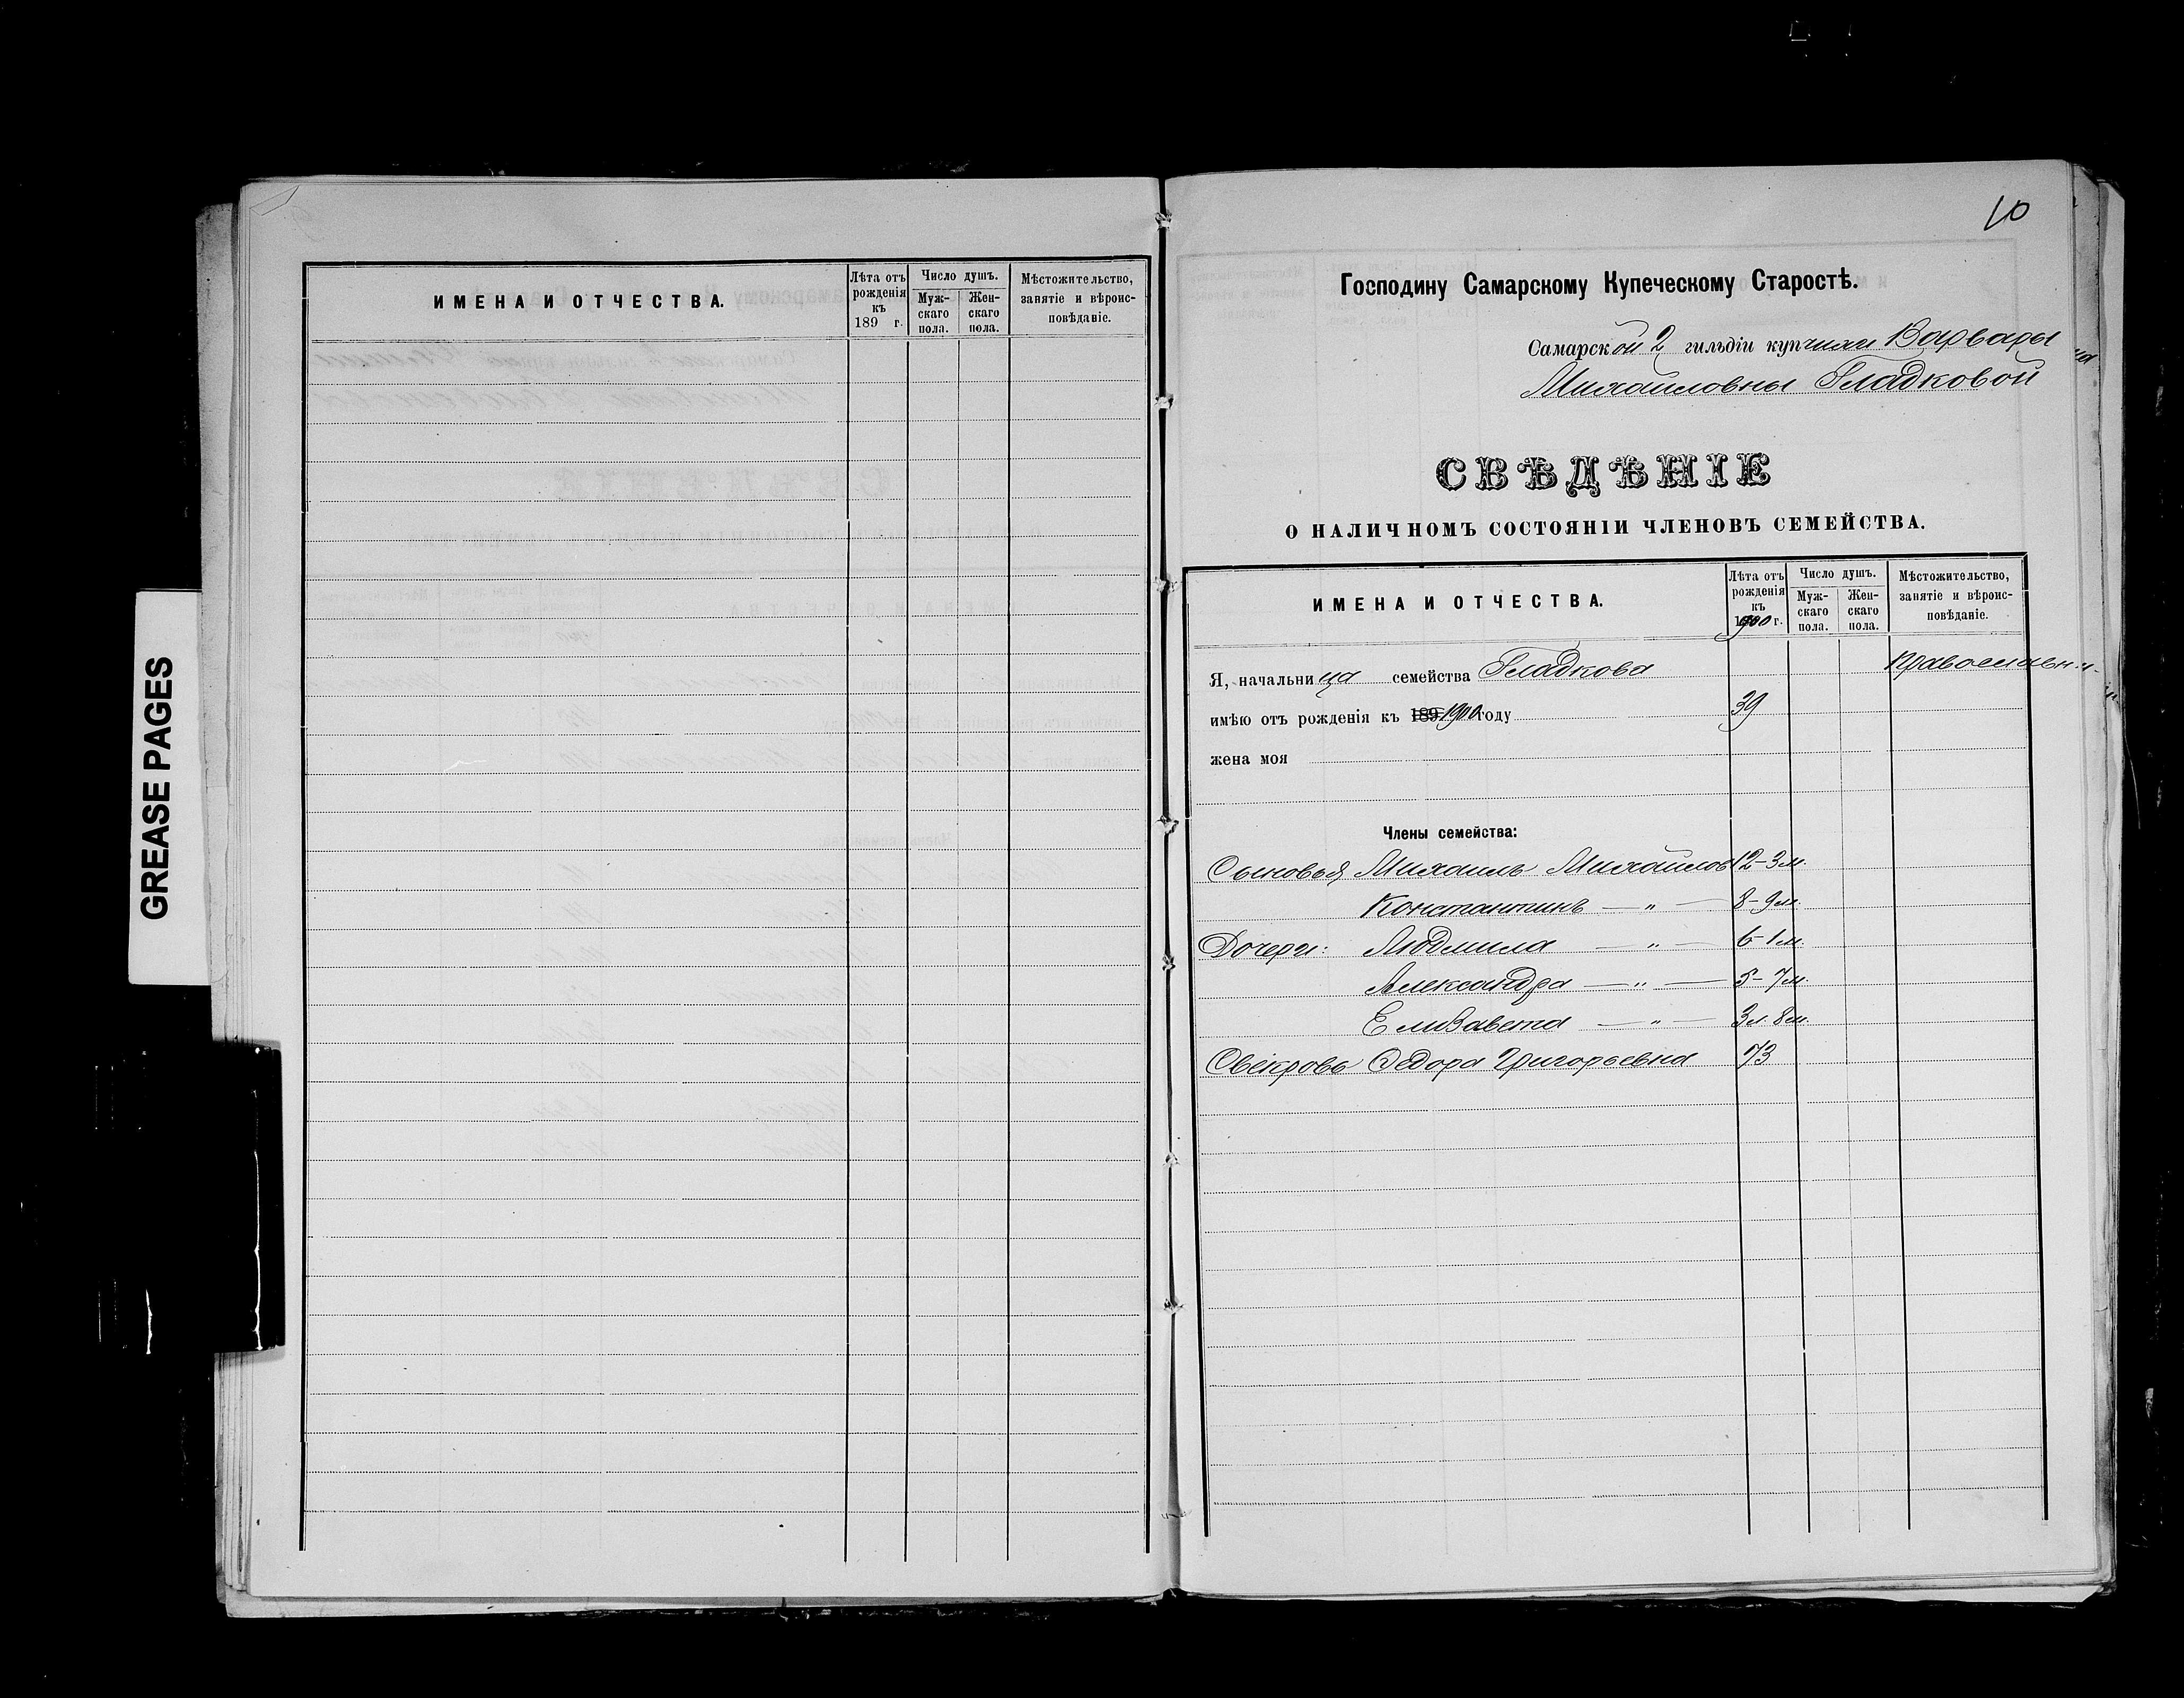 GREASE PAGES
ИМЕНА И ОТЧЕСТВА.
Лѣта отъ рожденія къ 189 г.
Число душъ.
Мужскаго пола.
Женскаго пола.
Мѣстожительство, занятіе и вѣроисповѣданіе.
10
Господину Самарскому Купеческому Старостѣ.
Самарской 2 гильдіи купчихи Варвары
Михайловны Гладковой
СВѢДѢНІЕ
О НАЛИЧНОМЪ СОСТОЯНІИ ЧЛЕНОВЪ СЕМЕЙСТВА.
ИМЕНА И ОТЧЕСТВА.
Лѣта отъ рожденія къ 1900 г.
Число душъ.
Мужскаго пола.
Женскаго пола.
Мѣстожительство, занятіе и вѣроисповѣданіе.
Я, начальница семейства Гладкова
имѣю отъ рожденія къ 189 1900 году 39
жена моя
Члены семейства:
Сыновья Михаилъ Михайлов 12-3 м.
Константинъ — " — 8-9 м.
Дочери: Людмила — " — 6-1 м.
Александра — " — 5-7 м.
Елизавета — " — 3 л. 8 м.
Свекровь Федора Григорьевна 73